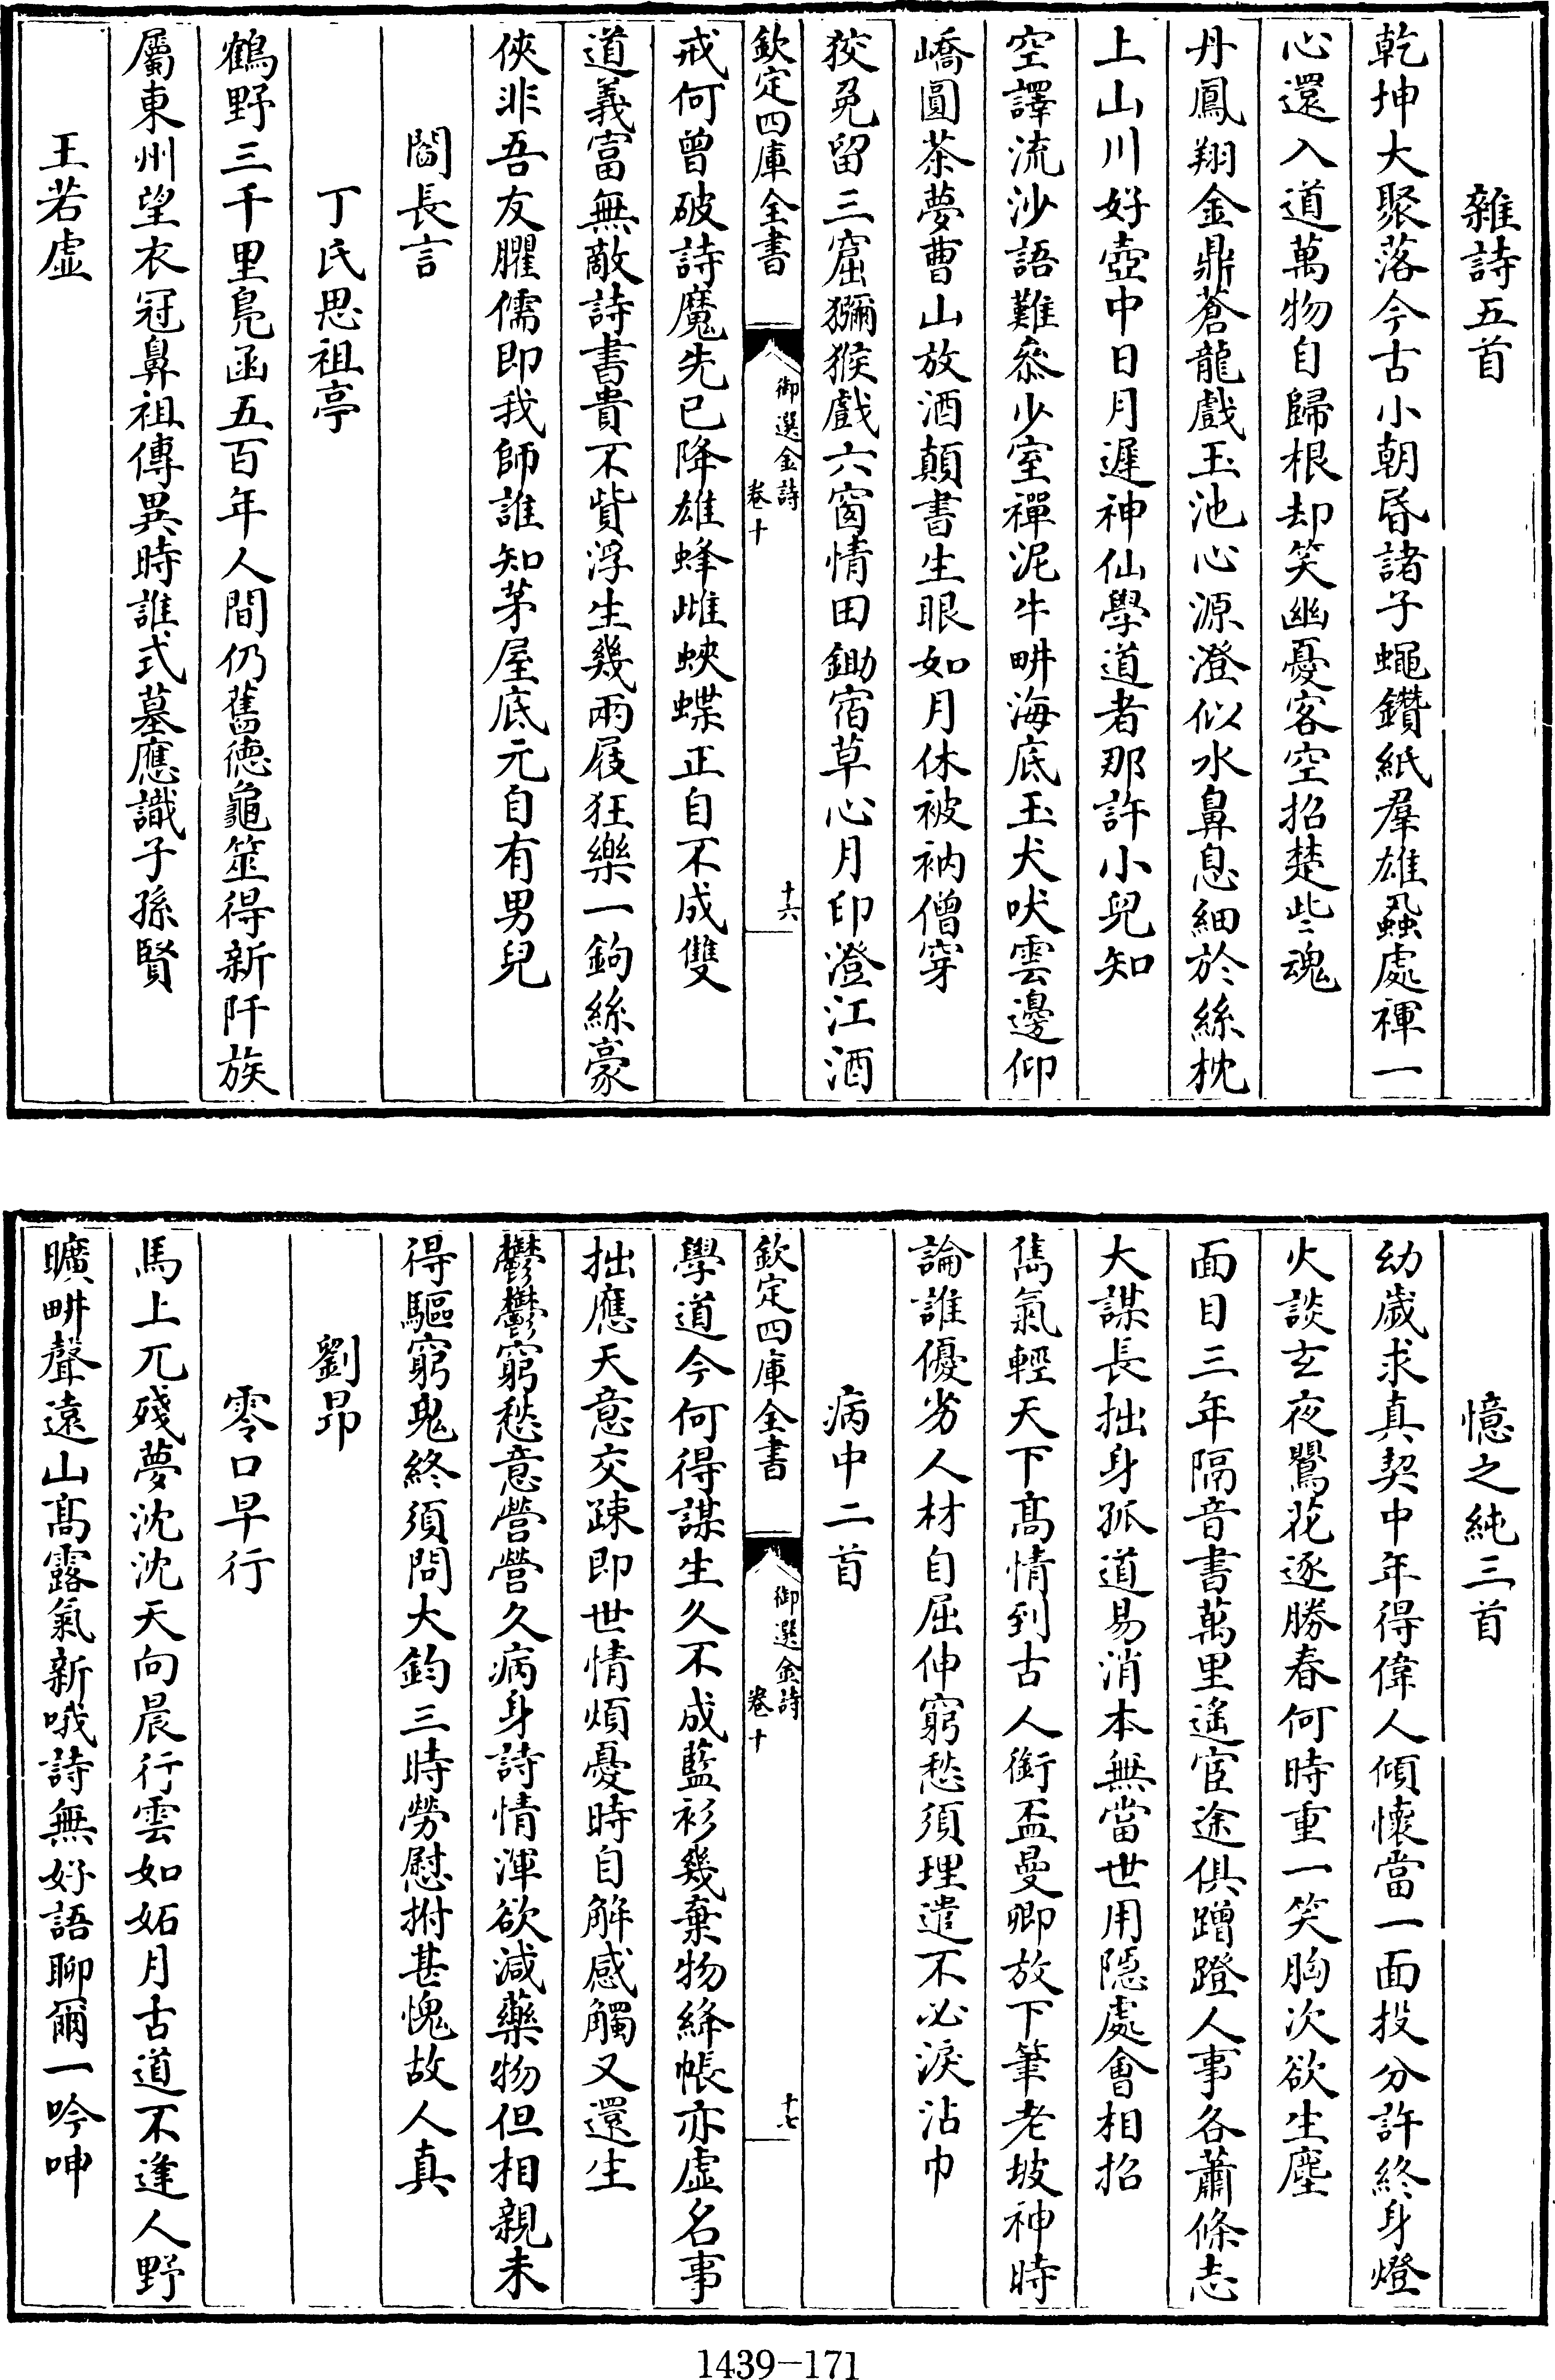 雜詩五首
乾坤大聚落今古小朝昏諸子蠅鑽紙羣雄蝨處褌一
心還入道萬物自歸根却笑幽憂客空招楚些魂
丹鳳翔金鼎蒼龍戲玉池心源澄似水鼻息細於絲枕
上山川好壺中日月遲神仙學道者那許小兒知
空譯流沙語難叅少室禪泥牛畊海底玉犬吠雲邊仰
嶠圓茶夢曹山放酒顛書生眼如月休被衲僧穿
狡兔留三窟獼猴戲六窗情田鋤宿草心月印澄江酒
欽定四庫全書
御選金詩
卷十
十六
戒何曾破詩魔先已降雄蜂雌蛺蝶正自不成雙
道義富無敵詩書貴不貲浮生幾兩屐狂樂一鉤絲豪
俠非吾友臞儒即我師誰知茅屋底元自有男兒
閻長言
丁氏思祖亭
鶴野三千里鳧函五百年人間仍舊德龜筮得新阡族
屬東州望衣冠鼻祖傳異時誰式墓應識子孫賢
王若虛
憶之純三首
幼歲求真契中年得偉人傾懷當一面投分許終身燈
火談玄夜鸎花逐勝春何時重一笑胸次欲生塵
面目三年隔音書萬里遙宦途俱蹭蹬人事各蕭條志
大謀長拙身孤道易消本無當世用隠處會相招
雋氣輕天下高情到古人銜盃曼卿放下筆老坡神時
論誰優劣人材自屈伸窮愁須理遣不必淚沾巾
病中二首
欽定四庫全書
御選金詩
卷十
十七
學道今何得謀生久不成藍衫幾棄物絳帳亦虛名事
拙應天意交疎即世情煩憂時自解感觸又還生
鬱鬱窮愁意營營久病身詩情渾欲減藥物但相親未
得驅窮鬼終須問大鈞三時勞慰拊甚愧故人真
劉昂
零口早行
馬上兀殘夢沈沈天向晨行雲如妬月古道不逢人野
曠畊聲遠山髙露氣新哦詩無好語聊爾一吟呻
1439-171